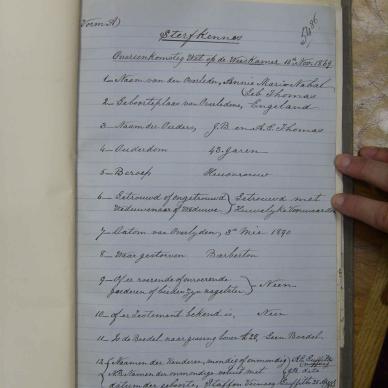 Form A)
Sterfkennis
Overeenkomstig Wet op de Weeskamer
1 Naam van den Overleden, Annie Maria Nahal
Geb Thomas
2 Geboorteplaats van Overledene, Engeland
3 Naam der Ouders, J.B. en A.E. Thomas
4 Ouderdom 43 Jaren
5 Beroep Huisvrouw
6 Getrouwd of ongetrouwd Getrouwd met
Weduwenaar of Weduwe Huwelijks Voorwaarden
7 Datum van Overlijden, 3de Mei 1890
8 Waar gestorven Barberton
9 Of er roerende of onroerende
goederen of beiden zijn nagelaten Neen
10 of er Testament bekend is, Neen
11 Is de Boedel Geen Boedel
12 Namen der Kinderen, mondig of onmondig
N.B. Namen der onmondige voluit met
datum der geboorte,